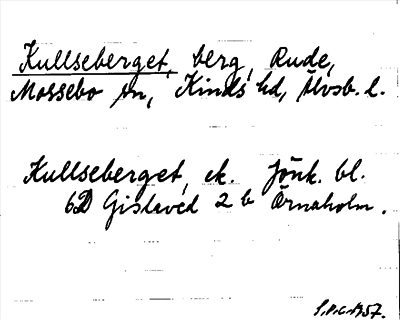 Kullseberget, berg, Rude,
Mossebo sn, Kinds hd, Älvsb. l.
Kullseberget, ek. Jönk. bl.
6D Gislaved 2 b Örnaholm.
1957.